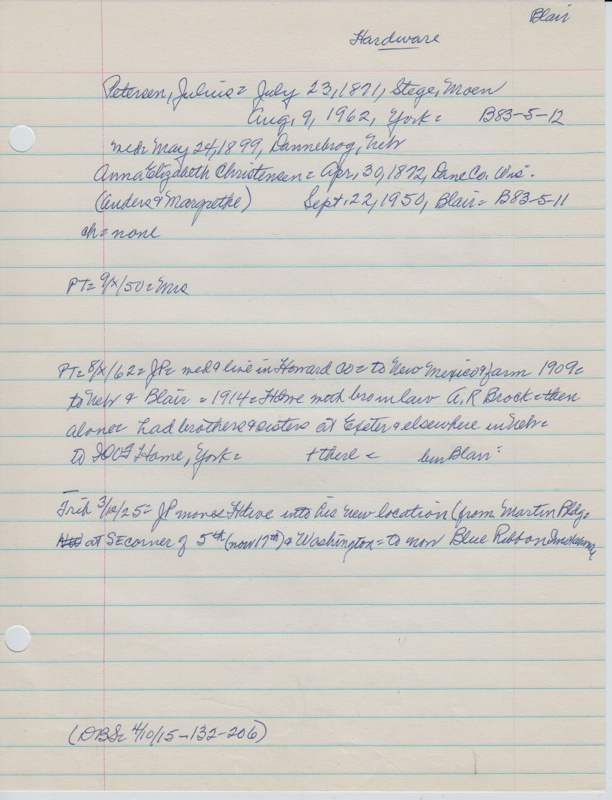 Blair
Hardware
Petersen, Julius = July 23, 1871, Stege, Moen
Aug. 9, 1962, York = B83-5-12
md = May 24, 1899, Dannebrog, Nebr
Anna Elizabeth Christensen = Apr. 30, 1872, Dane Co, Wis.
(Anders & Margrethe) Sept. 22, 1950, Blair = B83-5-11
ch = none
PT = 9/x/50 = Mrs
PT = 8/x/62 = JP = md & live in Howard Co = to New Mexico & farm 1909 =
to Nebr & Blair = 1914 = Hdwe with bro in law A. R Brock = then
alone = had brothers & sisters at Exeter & elsewhere in Nebr =
to IOOF Home, York = + there = bur Blair =
Trib 3/12/25 = JP moves Hdwe into his new location (from Martin Bldg =
at SE corner of 5th (now 17th) & Washington = to now Blue Ribbon
(DBS = 4/10/15-132-206)